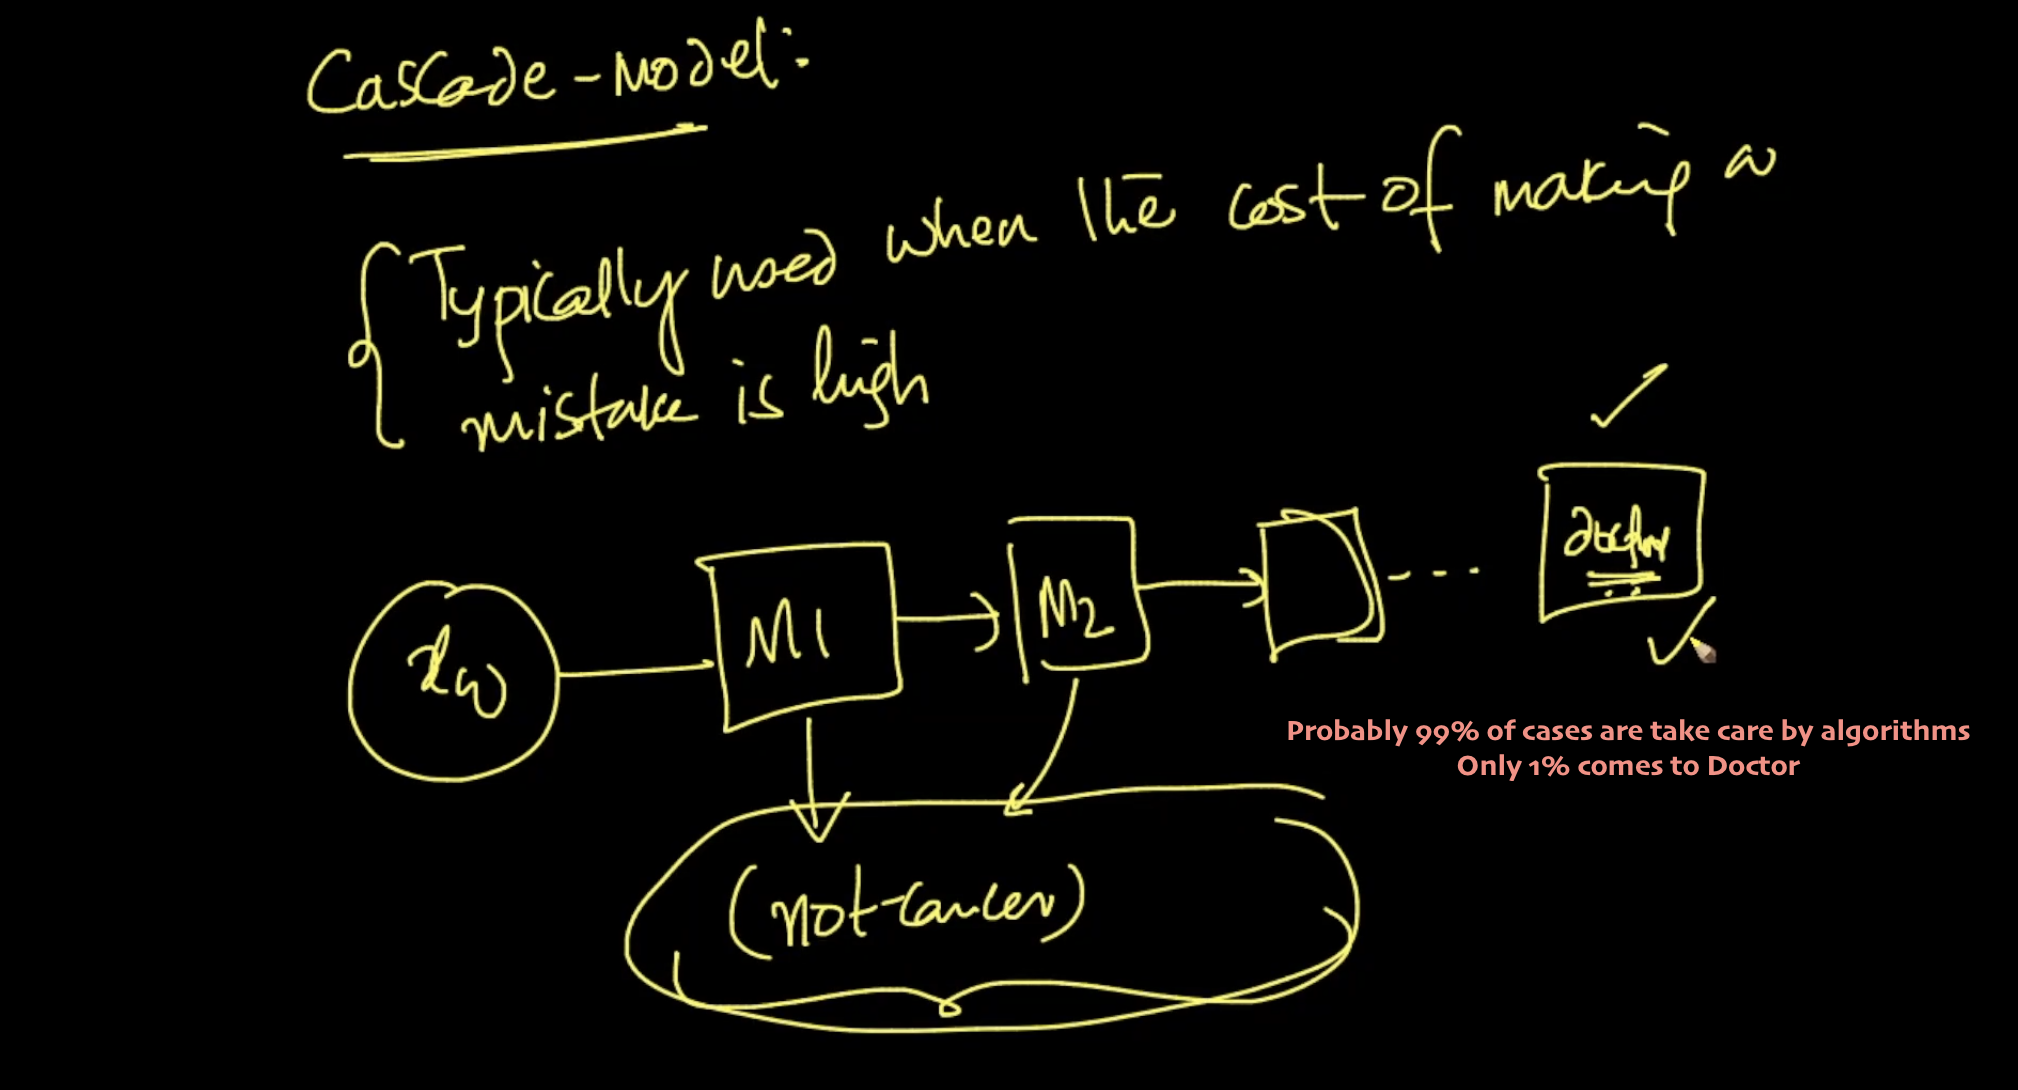 Cascade-Model:
Typically used when the cost of making a
mistake is high
doctor
M1
M2
xq
Probably 99% of cases are take care by algorithms
Only 1% comes to Doctor
(not-cancer)